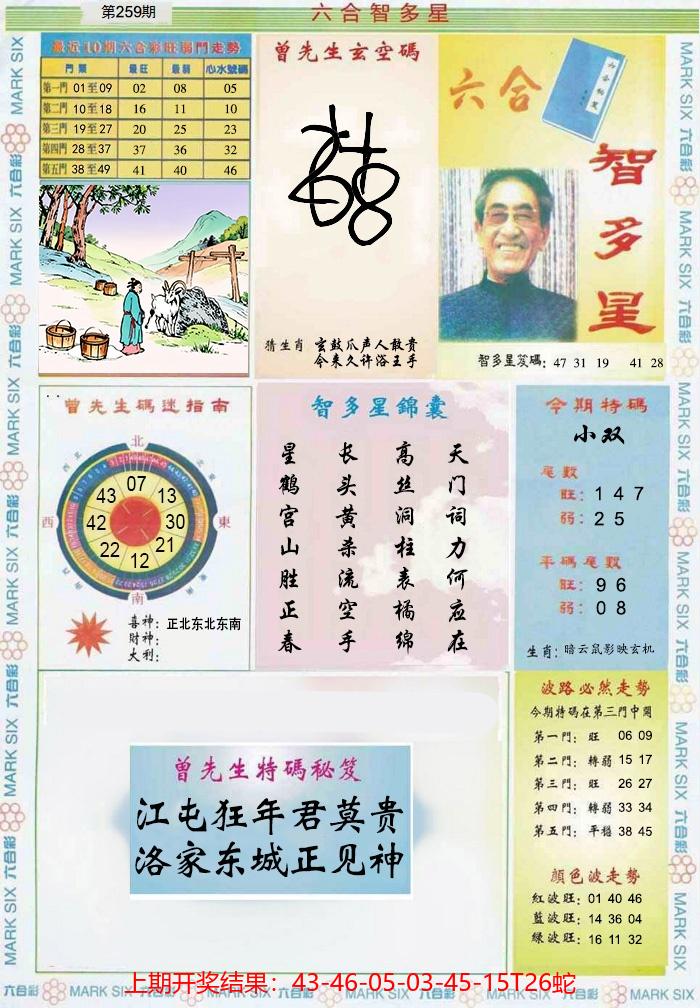 第259期
六合智多星
最近10期六合彩旺弱門走勢
門類 最旺 最弱 心水號碼
第一門 01至09 02 08 05
第二門 10至18 16 11 10
第三門 19至27 20 25 23
第四門 28至37 37 36 32
第五門 38至49 41 40 46
曾先生玄空碼
猜生肖 玄鼓爪声人散贵
今来久许浴王手
六合
智多星
智多星笈碼: 47 31 19 41 28
曾先生碼迷指南
北
東
南
西
07
13
30
21
12
22
42
43
喜神: 正北东北东南
財神:
大利:
智多星錦囊
天门词力何应在
高丝洞柱表橘绵
长头黄杀流空手
星鹤宫山胜正春
今期特碼
小双
尾數
旺: 1 4 7
弱: 2 5
平碼尾數
旺: 9 6
弱: 0 8
生肖: 暗云鼠影映玄机
曾先生特碼秘笈
江屯狂年君莫贵
洛家东城正见神
波路必然走勢
今期特碼在第三門中開
第一門: 旺 06 09
第二門: 轉弱 15 17
第三門: 旺 26 27
第四門: 轉弱 33 34
第五門: 平穩 38 45
顏色波走勢
紅波旺: 01 40 46
藍波旺: 14 36 04
綠波旺: 16 11 32
上期开奖结果：43-46-05-03-45-15T26蛇
MARK SIX 六合彩